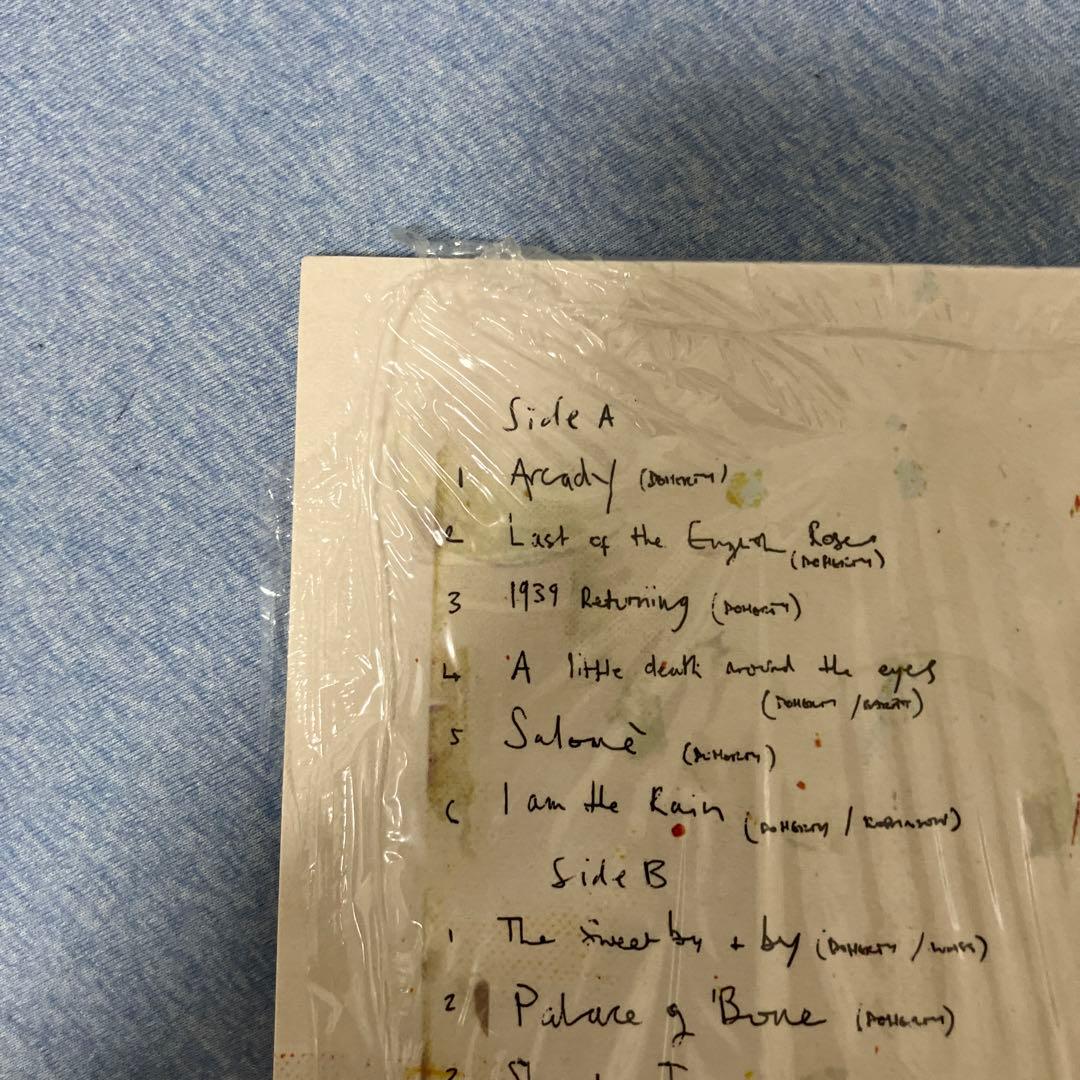 Side A
1 Arcady (DOHERTY)
2 Last of the English Roses
(DOHERTY)
3 1939 Returning (DOHERTY)
4 A little death around the eyes
(DOHERTY / BARAT)
5 Salomè (DOHERTY)
6 I am the Rain (DOHERTY / ROBINSON)
Side B
1 The Sweet by + by (DOHERTY / WOLFE)
2 Palace of Bone (DOHERTY)